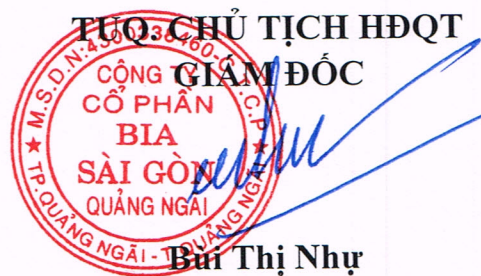 TUQ. CHỦ TỊCH HĐQT
GIÁM ĐỐC
CÔNG TY
CỔ PHẦN
BIA
SÀI GÒN
QUẢNG NGÃI
TP.QUẢNG NGÃI - T.QUẢNG NGÃI
Bùi Thị Như